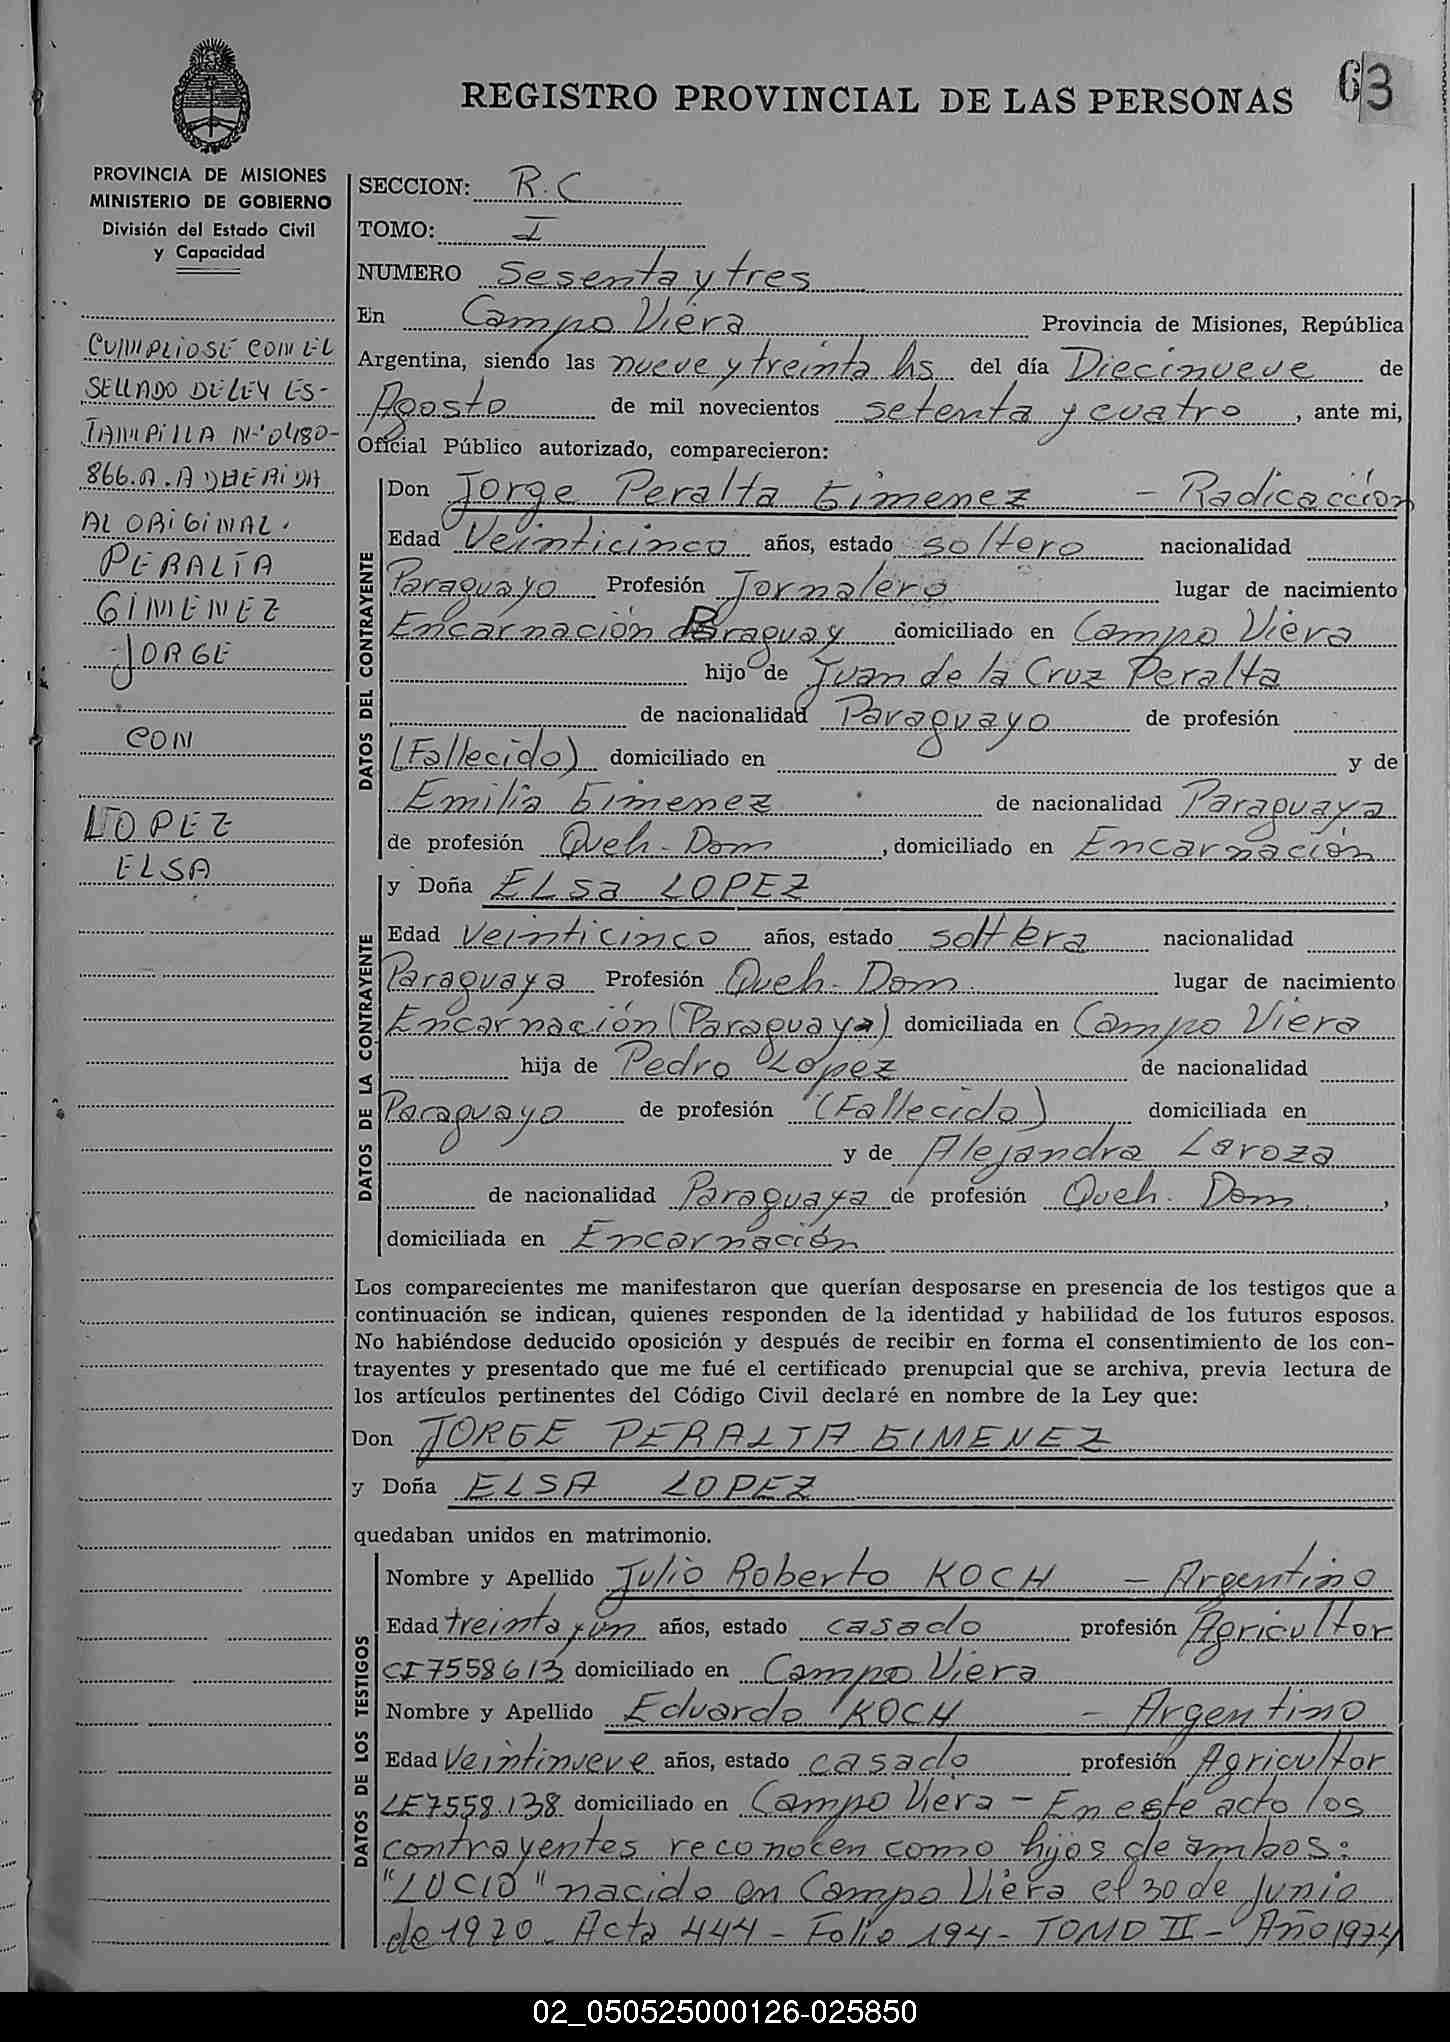 REGISTRO PROVINCIAL DE LAS PERSONAS
63
PROVINCIA DE MISIONES
MINISTERIO DE GOBIERNO
División del Estado Civil
y Capacidad
CUMPLIOSE CON EL
SELLADO DE LEY ES-
TAMPILLA Nº 0480-
866.A. ADHERIDA
AL ORIGINAL.
PERALTA
GIMENEZ
JORGE
CON
LOPEZ
ELSA
SECCION: R.C
TOMO: I
NUMERO Sesenta y tres
En Campo Viera Provincia de Misiones, República
Argentina, siendo las nueve y treinta hs del día Diecinueve de
Agosto de mil novecientos setenta y cuatro, ante mi,
Oficial Público autorizado, comparecieron:
DATOS DEL CONTRAYENTE
Don Jorge Peralta Gimenez - Radicaccion
Edad Veinticinco años, estado soltero nacionalidad
Paraguayo Profesión Jornalero lugar de nacimiento
Encarnación Paraguay domiciliado en Campo Viera
hijo de Juan de la Cruz Peralta
de nacionalidad Paraguayo de profesión
(Fallecido) domiciliado en y de
Emilia Gimenez de nacionalidad Paraguaya
de profesión Queh. Dom, domiciliado en Encarnación
DATOS DE LA CONTRAYENTE
y Doña ELsa LOPEZ
Edad Veinticinco años, estado soltera nacionalidad
Paraguaya Profesión Queh. Dom. lugar de nacimiento
Encarnación (Paraguaya) domiciliada en Campo Viera
hija de Pedro Lopez de nacionalidad
Paraguayo de profesión (Fallecido) domiciliada en
y de Alejandra Laroza
de nacionalidad Paraguaya de profesión Queh. Dom.,
domiciliada en Encarnación
Los comparecientes me manifestaron que querían desposarse en presencia de los testigos que a
continuación se indican, quienes responden de la identidad y habilidad de los futuros esposos.
No habiéndose deducido oposición y después de recibir en forma el consentimiento de los con-
trayentes y presentado que me fué el certificado prenupcial que se archiva, previa lectura de
los artículos pertinentes del Código Civil declaré en nombre de la Ley que:
Don JORGE PERALTA GIMENEZ
y Doña ELSA LOPEZ
quedaban unidos en matrimonio.
DATOS DE LOS TESTIGOS
Nombre y Apellido Julio Roberto KOCH - Argentino
Edad treinta y un años, estado casado profesión Agricultor
CI 7558613 domiciliado en Campo Viera
Nombre y Apellido Eduardo KOCH - Argentino
Edad Veintinueve años, estado casado profesión Agricultor
LE 7558.138 domiciliado en Campo Viera - En este acto los
contrayentes reconocen como hijos de ambos:
"LUCIO" nacido en Campo Viera el 30 de Junio
de 1970. Acta 444 - Folio 194 - TOMO II - Año 1974
02_050525000126-025850